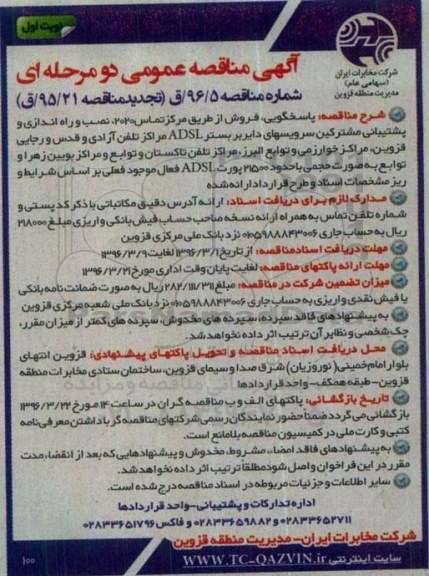 نوبت اول
شرکت مخابرات ایران
(سهامی عام)
مدیریت منطقه قزوین
آگهی مناقصه عمومی دو مرحله ای
شماره مناقصه ۹۶/۵/ق (تجدیدمناقصه ۹۵/۲۱/ق)
شرح مناقصه: پاسخگویی، فروش از طریق مرکز تماس ۲۰۲۰، نصب و راه اندازی و
پشتیبانی مشترکین سرویسهای دایر بر بستر ADSL مراکز تلفن آزادی و قدس و رجایی
قزوین، مراکز خوارزمی و توابع البرز، مراکز تلفن تاکستان و توابع و مراکز بویین زهرا و
توابع به صورت حجمی با حدود ۲۱۵۰۰ پورت ADSL فعال موجود فعلی بر اساس شرایط و
ریز مشخصات اسناد و طرح قرارداد ارائه شده
مدارک لازم برای دریافت اسناد: ارائه آدرس دقیق مکاتباتی با ذکر کد پستی و
شماره تلفن تماس به همراه ارائه نسخه صاحب حساب فیش بانکی واریزی مبلغ ۲۱۸۰۰۰
ریال به حساب جاری ۰۱۰۵۹۸۸۸۴۳۰۰۶ نزد بانک ملی مرکزی قزوین
مهلت دریافت اسناد مناقصه: از تاریخ ۱۳۹۶/۳/۱ لغایت ۱۳۹۶/۳/۹
مهلت ارائه پاکتهای مناقصه: لغایت پایان وقت اداری مورخ ۱۳۹۶/۳/۲۱
میزان تضمین شرکت در مناقصه: مبلغ ۲۸۲/۱۱۱/۳۱۱ ریال به صورت ضمانت نامه بانکی
یا فیش نقدی واریزی به حساب جاری ۰۱۰۵۹۸۸۸۴۳۰۰۶ نزد بانک ملی شعبه مرکزی قزوین
به پیشنهادهای فاقد سپرده، سپرده های مخدوش، سپرده های کمتر از میزان مقرر،
چک شخصی و نظایر آن ترتیب اثر داده نخواهد شد.
محل دریافت اسناد مناقصه و تحویل پاکتهای پیشنهادی: قزوین انتهای
بلوار امام خمینی (نوروزیان) شرق صدا و سیمای قزوین، ساختمان ستادی مخابرات منطقه
قزوین - طبقه همکف - واحد قراردادها
تاریخ بازگشائی: پاکتهای الف و ب مناقصه گران در ساعت ۱۴ مورخ ۱۳۹۶/۳/۲۲
بازگشائی می گردد ضمناً حضور نمایندگان رسمی شرکتهای مناقصه گر با داشتن معرفی نامه
کتبی و کارت ملی در کمیسیون مناقصه بلامانع است.
به پیشنهادهای فاقد امضاء، مشروط، مخدوش و پیشنهادهایی که بعد از انقضاء مدت
مقرر در این فراخوان واصل شود مطلقاً ترتیب اثر داده نخواهد شد.
سایر اطلاعات و جزئیات مربوطه در اسناد مناقصه درج شده است.
اداره تدارکات و پشتیبانی - واحد قراردادها
۰۲۸۳۳۶۵۲۷۱۱ و ۰۲۸۳۳۶۵۹۸۸۲ و فاکس ۰۲۸۳۳۶۵۱۷۹۶
شرکت مخابرات ایران - مدیریت منطقه قزوین
سایت اینترنتی WWW.TC-QAZVIN.ir
۱۰۰